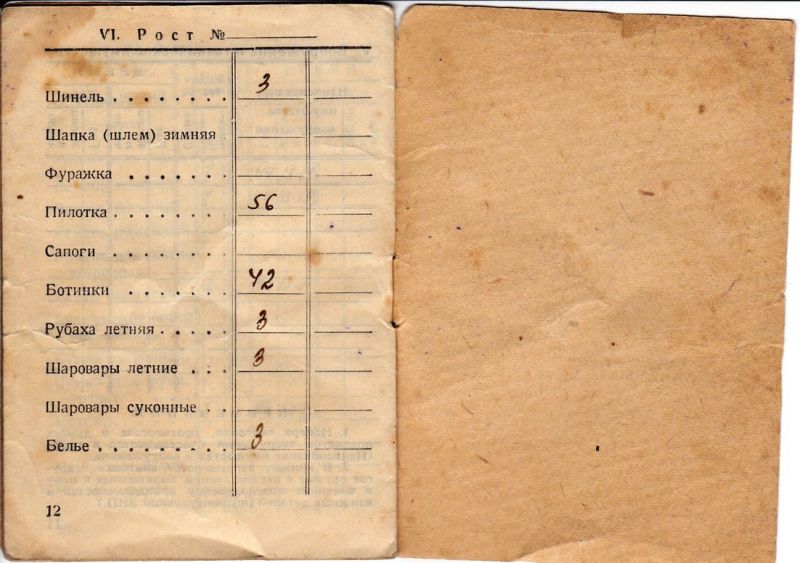 VI. Рост №
Шинель . . . . . . . . 3
Шапка (шлем) зимняя
Фуражка . . . . . . .
Пилотка . . . . . . . 56
Сапоги . . . . . . .
Ботинки . . . . . . . 42
Рубаха летняя . . . . . 3
Шаровары летние . . . 3
Шаровары суконные . .
Белье . . . . . . . . . 3
12